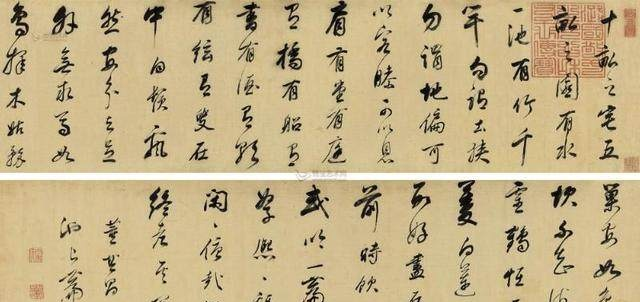 十畝之宅五
畝之園有水
一池有竹千
竿勿謂土狹
勿謂地偏可
以容膝可以息
肩有堂有庭
有橋有船有
書有酒有歌
有絃有叟在
中白鬚飄
然安分知足
外無求焉如
鳥擇木姑務
巢安如
坎不知
靈鶴怪
菱白蓮
所好盡在
前時飲
或吟一篇
孥熙熙
閑閑優哉
終老其
董其昌
池上篇